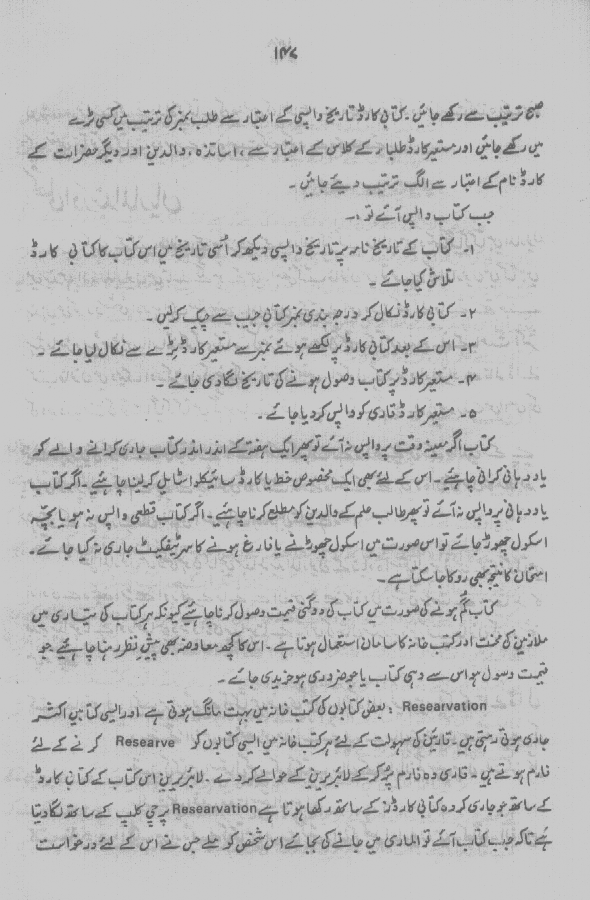 ۱۴۷
صحیح ترتیب سے رکھے جائیں۔ کتابی کارڈ تاریخ واپسی کے اعتبار سے طلب نمبر کی ترتیب میں کسی ٹرے
میں رکھے جائیں اور مستعیر کارڈ طلباء کے کلاس کے اعتبار سے، اساتذہ، والدین اور دیگر حضرات کے
کارڈ نام کے اعتبار سے الگ ترتیب دیئے جائیں۔
جب کتاب واپس آئے تو :۔
۱۔ کتاب کے تاریخ نامہ پر تاریخ واپسی دیکھ کر اُسی تاریخ میں اس کتاب کا کتابی کارڈ
تلاش کیا جائے۔
۲۔ کتابی کارڈ نکال کر درجہ بندی نمبر کتابی جیب سے چیک کر لیں۔
۳۔ اس کے بعد کتابی کارڈ پر لکھے ہوئے نمبر سے مستعیر کارڈ ٹرے سے نکال لیا جائے۔
۴۔ مستعیر کارڈ پر کتاب وصول ہونے کی تاریخ لگا دی جائے۔
۵۔ مستعیر کارڈ قاری کو واپس کر دیا جائے۔
کتاب اگر معینہ وقت پر واپس نہ آئے تو پھر ایک ہفتہ کے اندر اندر کتاب جاری کرانے والے کو
یاد دہانی کرانی چاہئیے۔ اس کے لئے بھی ایک مخصوص خط یا کارڈ سائیکلو اسٹایل کر لینا چاہئیے۔ اگر کتاب
یاد دہانی پر واپس نہ آئے تو پھر طالب علم کے والدین کو مطلع کرنا چاہئیے۔ اگر کتاب قطعی واپس نہ ہو یا بچہ
اسکول چھوڑ جائے تو اس صورت میں اسکول چھوڑنے یا فارغ ہونے کا سرٹیفکیٹ جاری نہ کیا جائے۔
امتحان کا نتیجہ بھی روکا جا سکتا ہے۔
کتاب گم ہونے کی صورت میں کتاب کی دوگنی قیمت وصول کرنا چاہئیے کیونکہ ہر کتاب کی تیاری میں
ملازمین کی محنت اور کتب خانہ کا سامان استعمال ہوتا ہے۔ اس کا کچھ معاوضہ بھی پیشِ نظر رہنا چاہئیے جو
قیمت وسول ہو اس سے وہی کتاب یا جو ضروری ہو خریدی جائے۔
Researvation : بعض کتابوں کی کتب خانہ میں بہت مانگ ہوتی ہے اور ایسی کتابیں اکثر
جاری ہوتی رہتی ہیں۔ قارئین کی سہولت کے لئے ہر کتب خانہ میں ایسی کتابوں کو Researve کرنے کے لئے
فارم ہوتے ہیں۔ قاری وہ فارم پُر کر کے لائبریرین کے حوالے کر دے۔ لائبریرین اس کتاب کے کتابی کارڈ
کے ساتھ جو جاری کردہ کتابی کارڈز کے ساتھ رکھا ہوتا ہے Researvation پرچی کلپ کے ساتھ لگا دیتا
ہے تاکہ جب کتاب آئے تو الماری میں جانے کی بجائے اس شخص کو ملے جس نے اس کے لئے درخواست